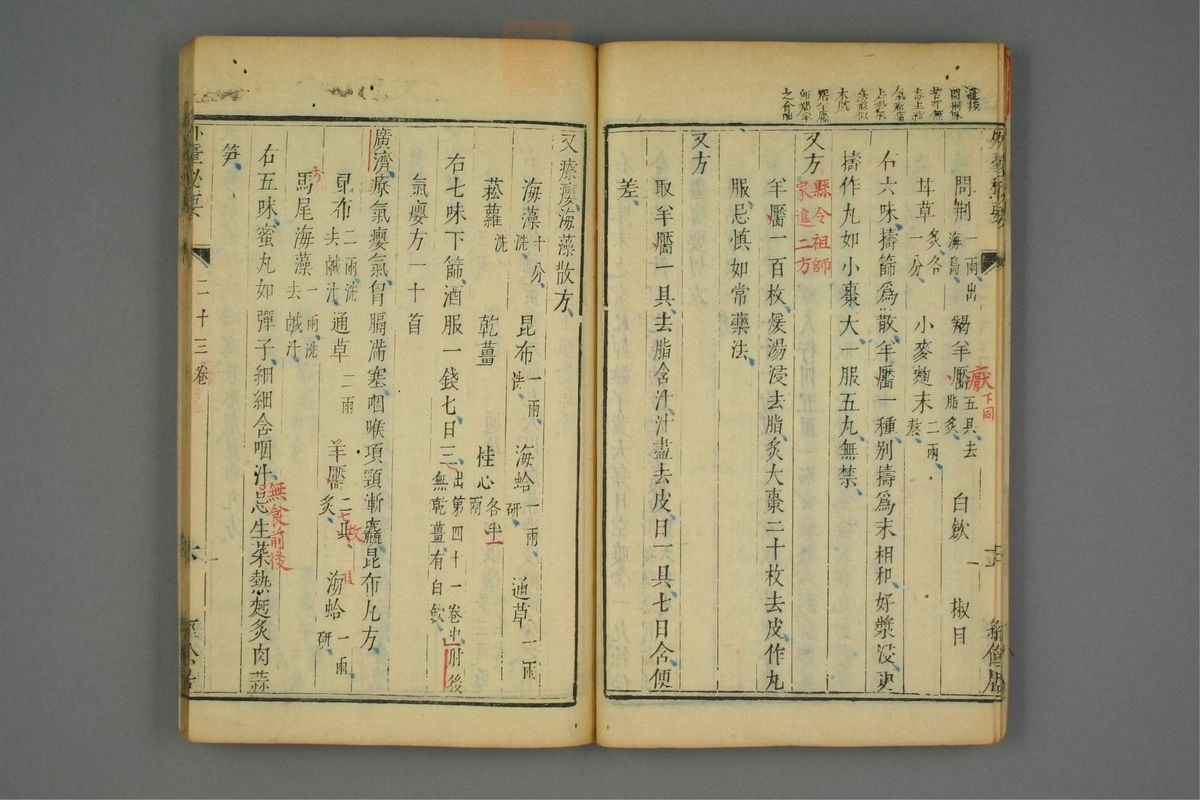 問荆 一兩出海島 羯羊靨 五具去脂炙 白歛 椒目
甘草 炙各一分 小麥麴末 二兩熬
右六味擣篩爲散羊靨一種别擣爲末相和好漿浸更
擣作丸如小棗大一服五丸無禁
厭下同
又方
縣令祖師
家進二方
羊靨一百枚煖湯浸去脂炙大棗二十枚去皮作丸
服忌慎如常藥法
又方
取羊靨一具去脂含汁汁盡去皮日一具七日含便
差
又療癭海藻散方
海藻 十分洗 昆布 一兩洗 海蛤 一兩研 通草 一兩
菘蘿 洗 乾薑 桂心 各二兩
右七味下篩酒服一錢七日三 出第四十一卷中肘後無乾薑有白歛
氣癭方一十首
廣濟療氣癭氣胷膈滿塞咽喉項頸漸麤昆布丸方
昆布 二兩洗去鹹汁 通草 一兩 羊靨 二具炙 海蛤 一兩研
馬尾海藻 一兩洗去鹹汁
七枚
右五味蜜丸如彈子細細含咽汁忌生菜熱麪炙肉蒜
無食前後
笋
外臺秘要
二十三卷
六
經餘居